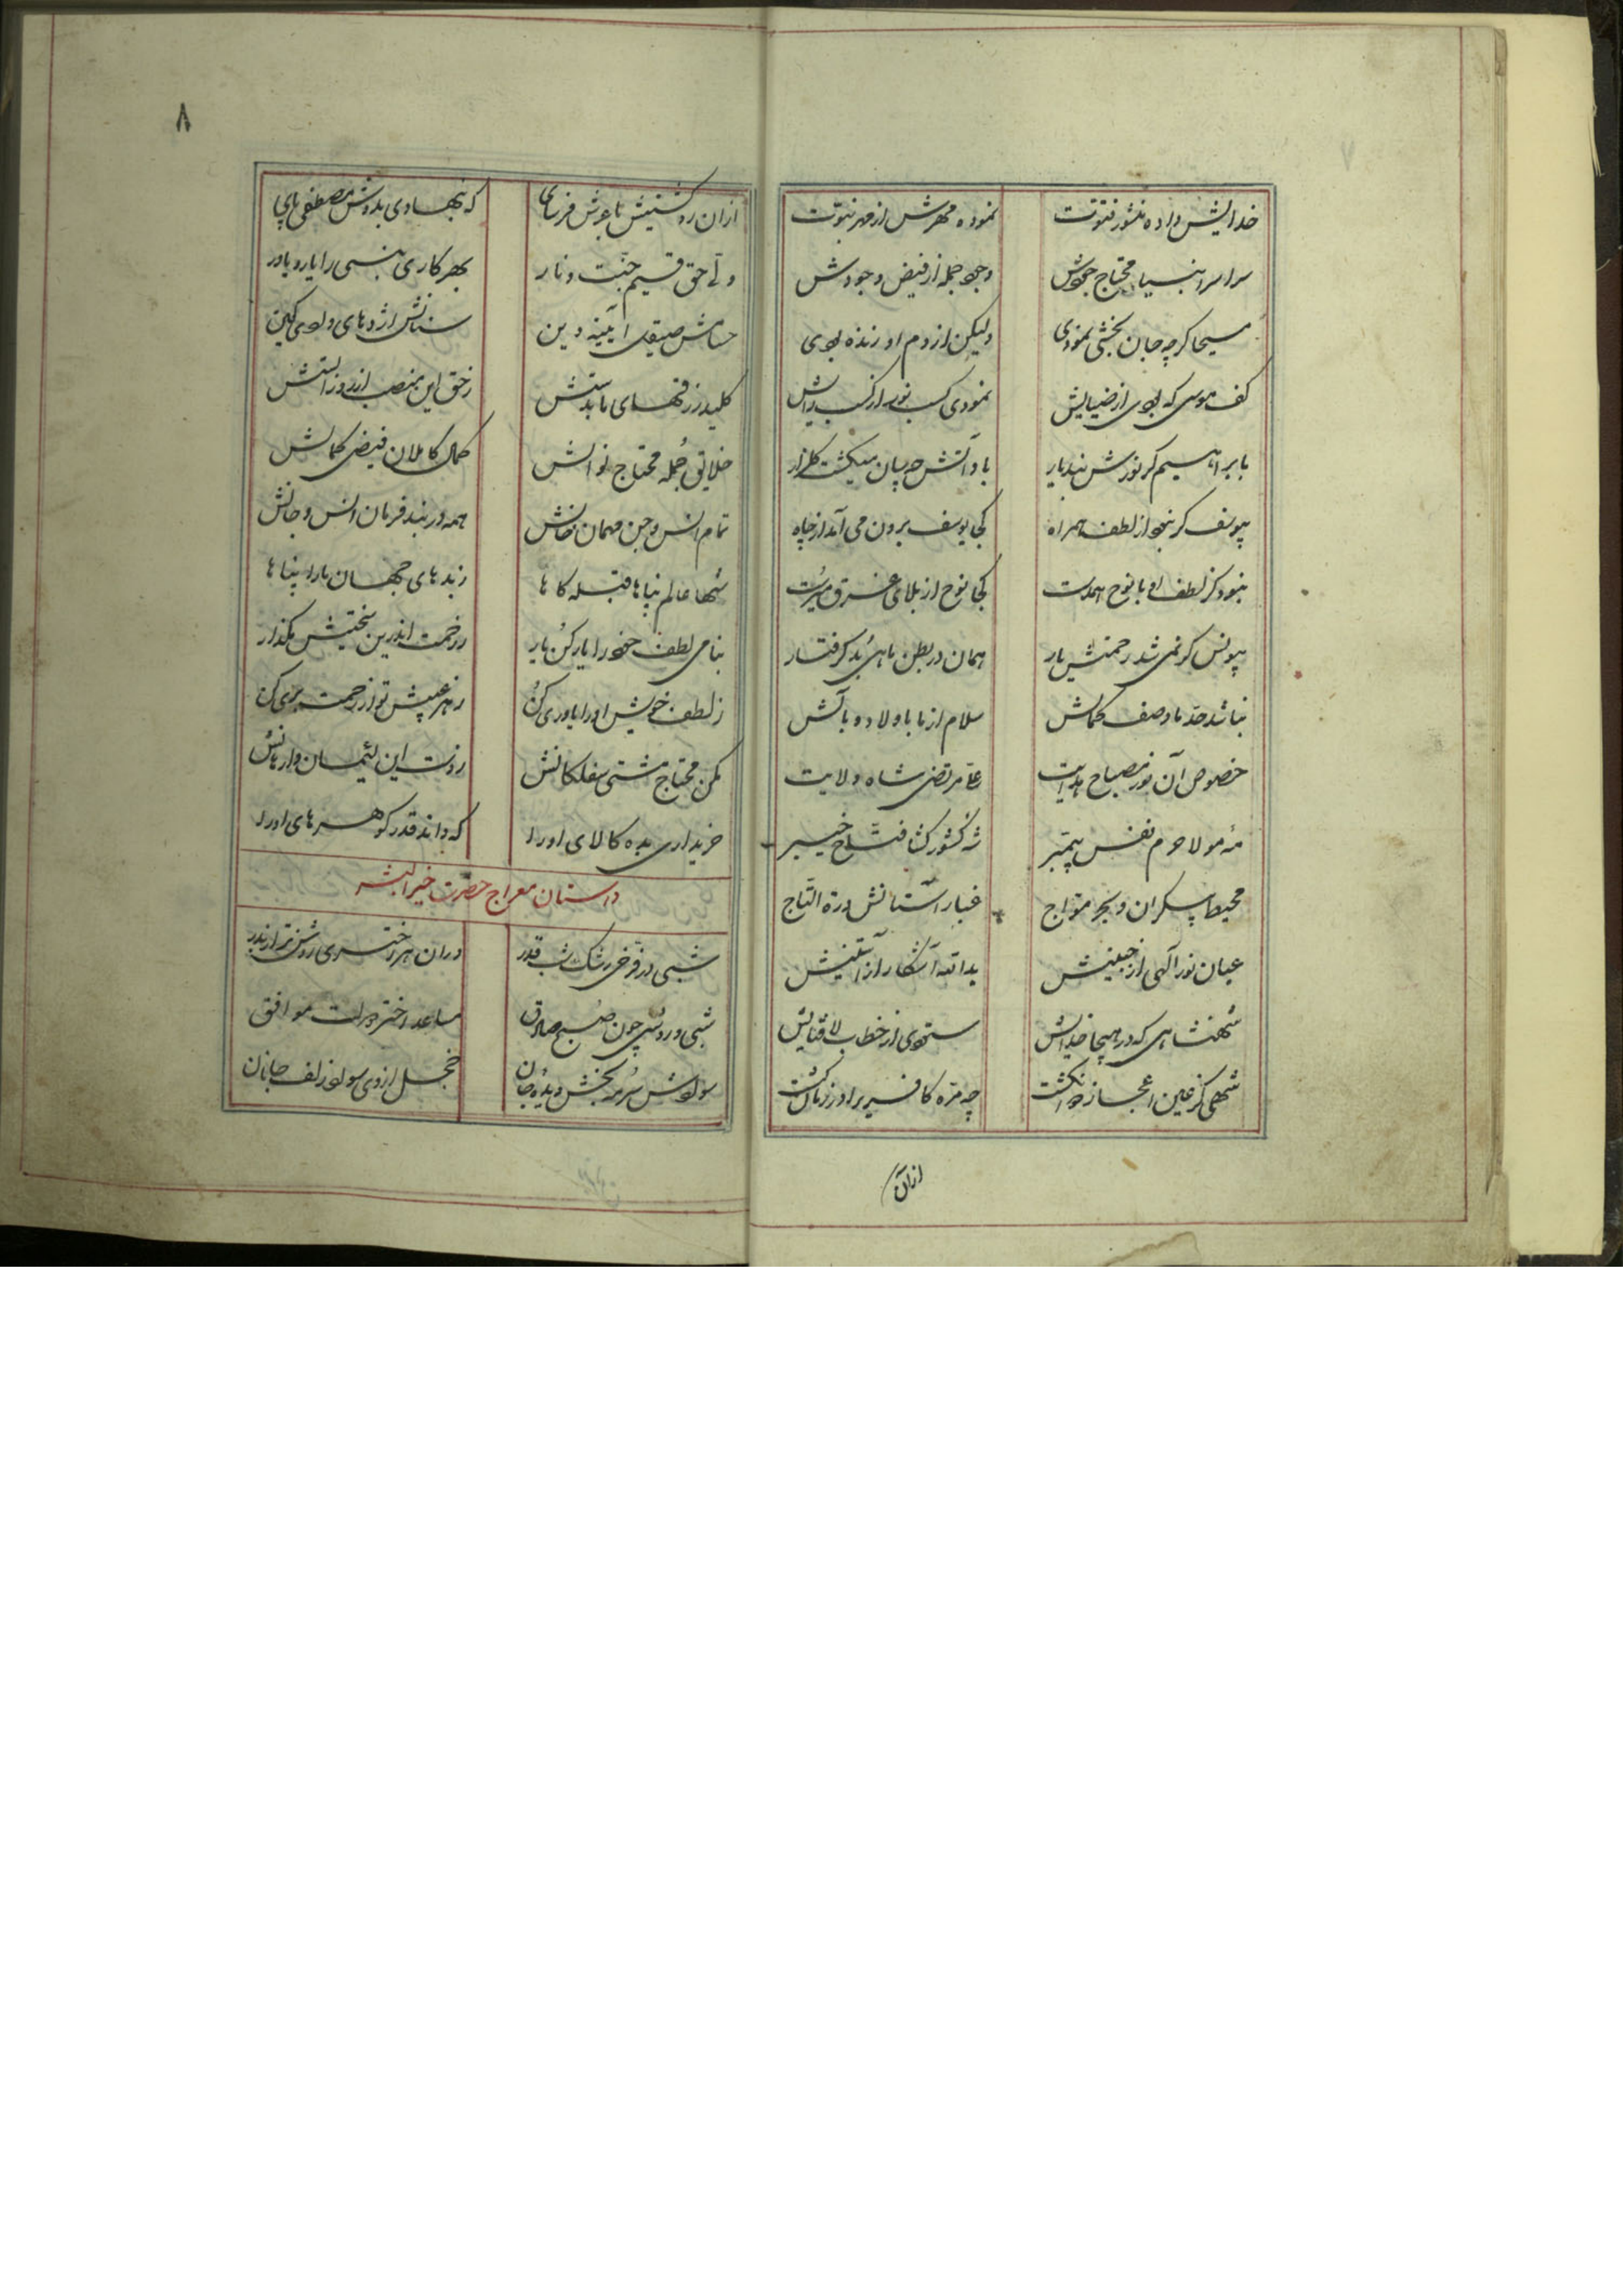 ۷
خدایش داده منشور فتوت نموده مهرش از مهر نبوت
سراسر انبیا محتاج جودش وجود جمله از فیض وجودش
مسیحا گرچه جان بخشی نمودی ولیکن از دم او زنده بودی
کف موسی که بودی از ضیایش نمودی کسب نور از کسب رایش
بابراهیم گر نورش نبد یار باو آتش چه سان میکشت گلزار
بیوسف گر نبود از لطف همراه کجا یوسف برون می آمد از چاه
نبود گر لطف او با نوح همدست کجا نوح از بلای غرق میرست
بیونس گو نمی شد رحمتش یار همان در بطن ماهی بد گرفتار
نباشد حد ما وصف کمالش سلام از ما باولاد و بآلش
خصوص آن نور مصباح هدایت علی مرتضی شاه ولایت
مه مولا حرم نفس پیمبر شه کشور کشا فتاح خیبر
محیط بیکران و بحر مواج غبار آستانش درة التاج
عیان نور الهی از جبینش یدالله آشکار از آستینش
شهنشاهی که در هیجا خدایش ستودی از خطاب لا فتایش
شهی کز عین اعجاز دو انگشت چه مره کافریرا در زمان کشت
ازان
۸
ازان رو کشتیش با عرش فرسای که بنهادی بدوش مصطفی پای
ولی حق قسیم جنت و نار بهر کاری نبی را یار و یاور
حسامش صیقل آیینه دین سنانش اژدهای وادی کین
کلید رزقهای ما بدستش ز حق این منصب از روز الستش
خلایق جمله محتاج نوالش کمال کاملان فیض کمالش
تمام انس و جن مهمان خوانش همه در بند فرمان انس و جانش
شها عالم پناها قبله گاها ز بدهای جهان ما را پناها
بنامی لطف خود را یار کن یار ز رحمت اندرین سختیش مگذار
ز لطف خویش او را یاوری کن ز هر عیبش تو از رحمت بری کن
مکن محتاج مشتی سفلکانش ز دست این لئیمان وارهانش
خریداری بده کالای او را که داند قدر گوهرهای او را
داستان معراج حضرت خیر البشر
شبی در فرخی رشک شب قدر دران هر اختری روشن تر از بدر
شبی در روشنی چون صبح صادق مساعد اختر و دولت موافق
سوادش سرمه بخش دیده جان خجل از وی سواد زلف جانان